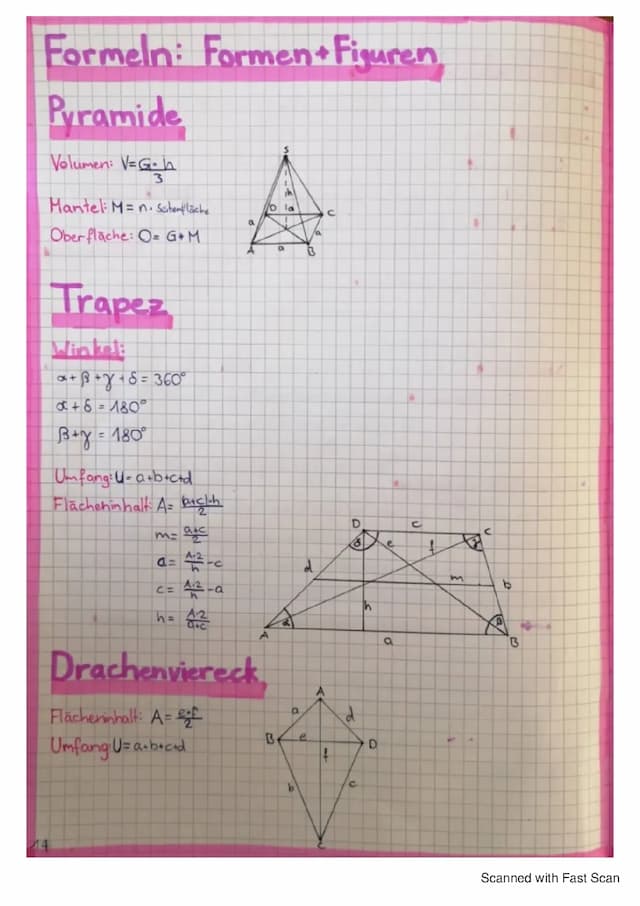 Formeln: Formen+Figuren
Pyramide
Volumen: V=G·h/3
Mantel: M=n·Seitenfläche
Oberfläche: O=G+M
S
h
D a C
a a
A a B
Trapez
Winkel:
α+β+γ+δ=360°
α+δ=180°
β+γ=180°
Umfang: U=a+b+c+d
Flächeninhalt: A=(a+c)·h/2
m=a+c/2
a=A·2/h-c
c=A·2/h-a
h=A·2/a+c
D c C
δ e f γ
d m b
h
A α β B
a
Drachenviereck
Flächeninhalt: A=e·f/2
Umfang: U=a+b+c+d
A
a d
B e D
f
b c
C
14
Scanned with Fast Scan